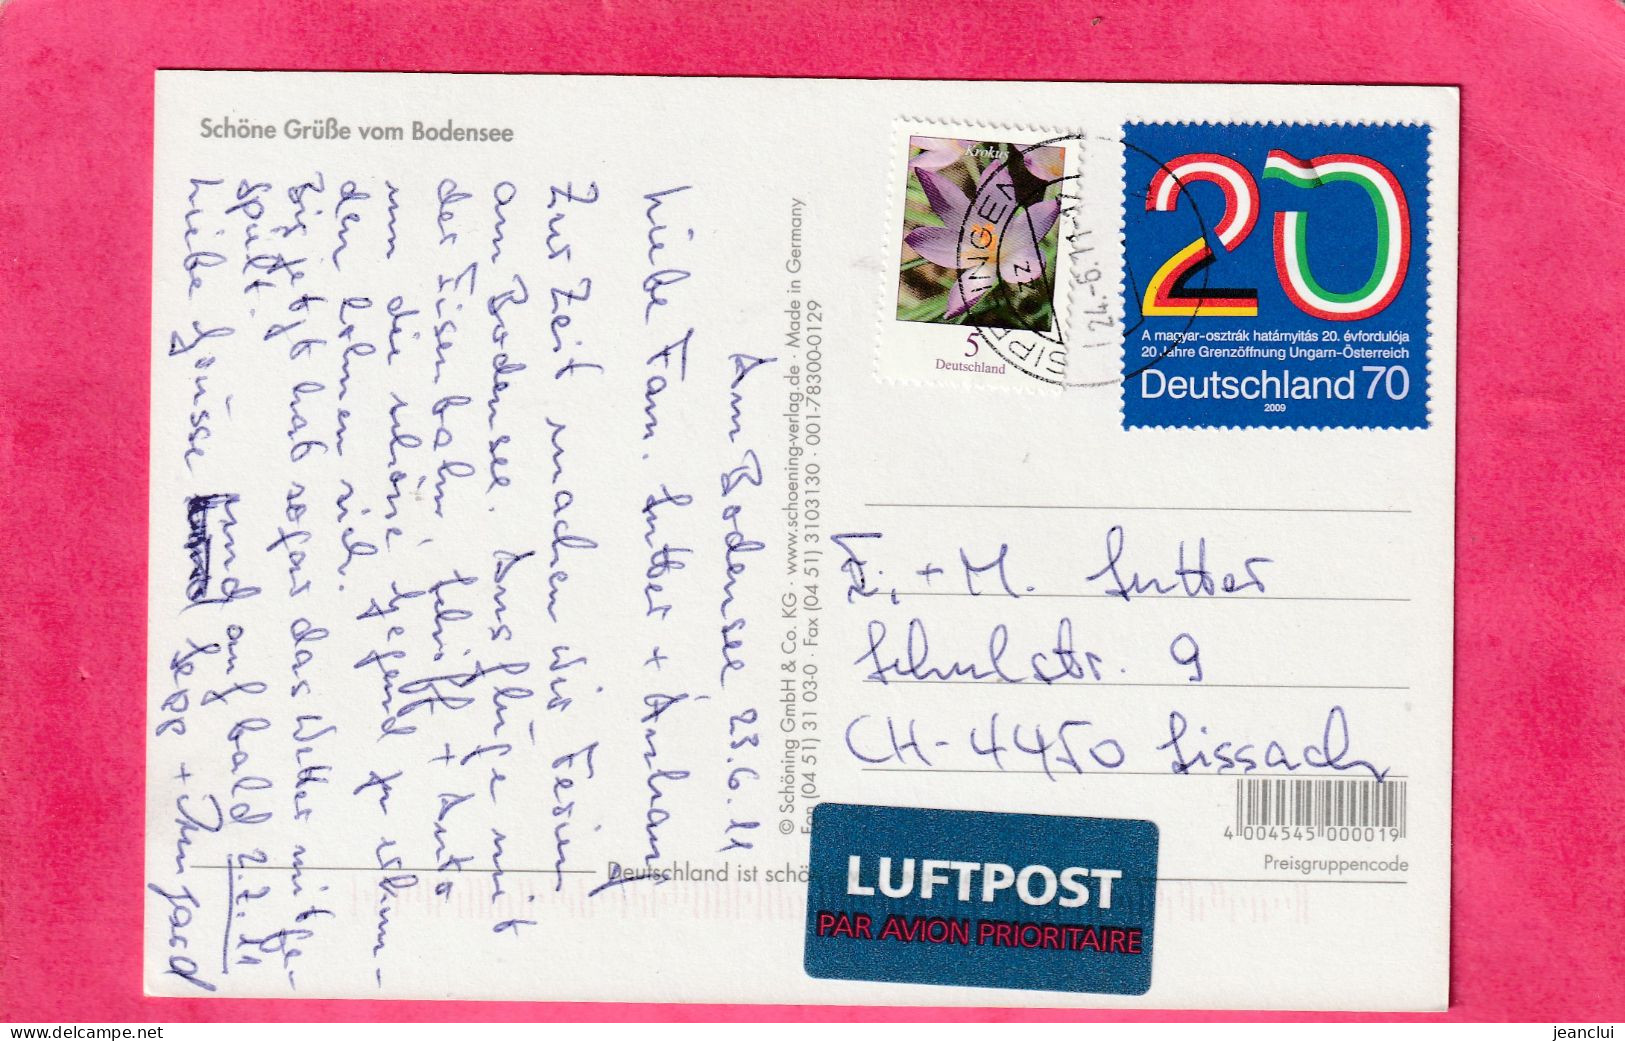 Schöne Grüße vom Bodensee
Am Bodensee 23.6.11
Liebe Fam. Sutter + Anhang
Zur Zeit machen wir Ferien
am Bodensee. Ausflüge mit
der Eisenbahn, Schiff + Auto
um die schöne Gegend zu erkun-
den lohnen sich.
Bis jetzt hat sogar das Wetter mitge-
spielt.
und auf bald 2.7.11
Liebe Grüsse Sepp + Irmgard
Krokus
5
Deutschland
24.-6.11
A magyar-osztrák határnyitás 20. évfordulója
20 Jahre Grenzöffnung Ungarn-Österreich
Deutschland 70
2009
F. + M. Sutter
Schulstr. 9
CH-4450 Sissach
© Schöning GmbH & Co. KG · www.schoening-verlag.de · Made in Germany
Fon (04 51) 31 03-0 · Fax (04 51) 3 10 31 30 · 001-78300-0129
4 004545 000019
Preisgruppencode
Deutschland ist schö
LUFTPOST
PAR AVION PRIORITAIRE
www.delcampe.net
jeanclui